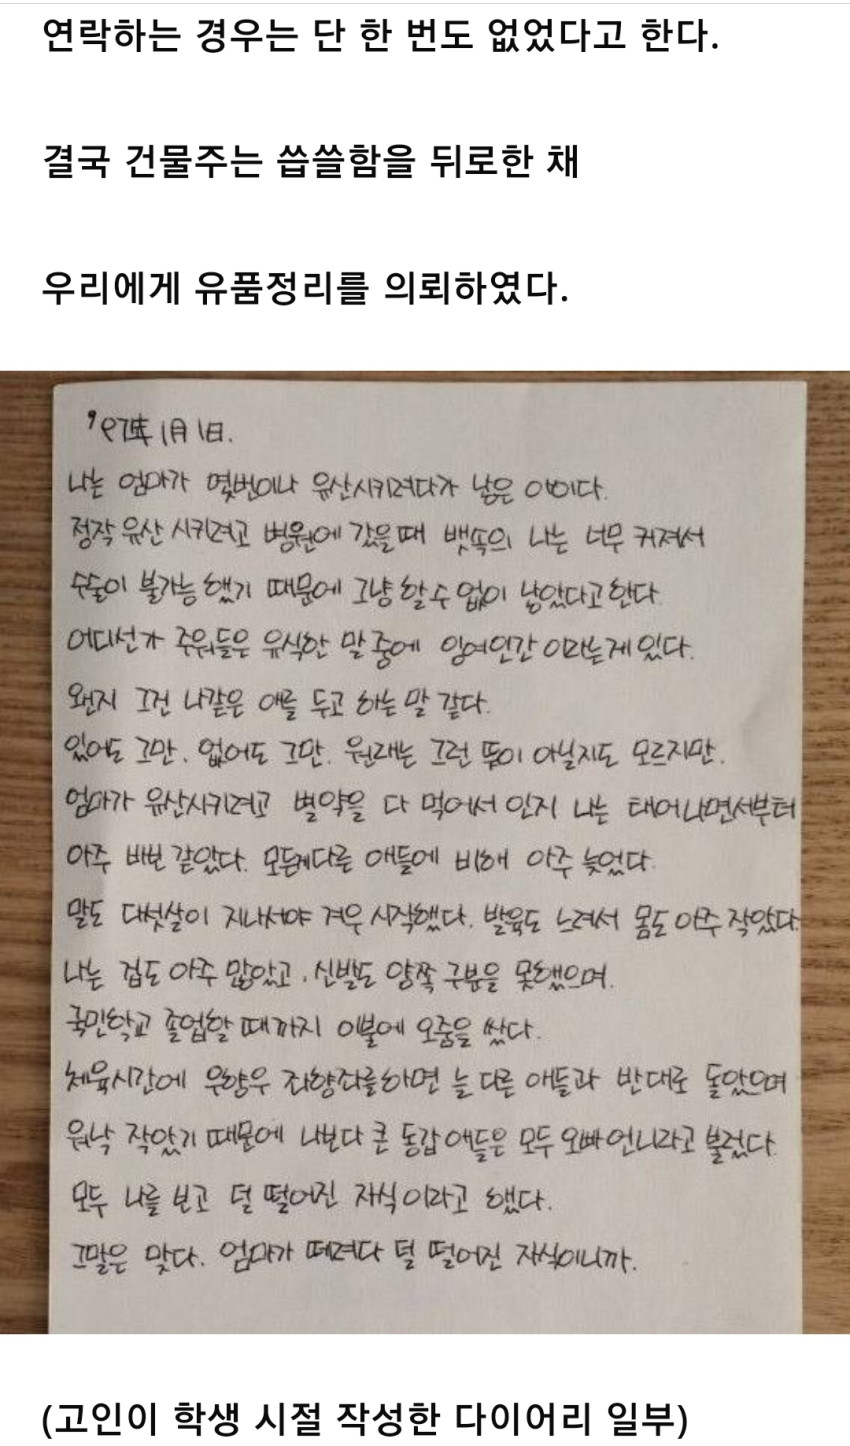 연락하는 경우는 단 한 번도 없었다고 한다.
결국 건물주는 씁쓸함을 뒤로한 채
우리에게 유품정리를 의뢰하였다.
'97年 1月 1日.
나는 엄마가 몇번이나 유산시키려다가 남은 아이다.
정작 유산 시키려고 병원에 갔을때 뱃속의 나는 너무 커져서
수술이 불가능했기 때문에 그냥 할 수 없이 낳았다고 한다.
어디선가 주워들은 유식한 말 중에 잉여인간 이라는게 있다.
왠지 그건 나같은 애를 두고 하는 말 같다.
있어도 그만. 없어도 그만. 원래는 그런 뜻이 아닐지도 모르지만.
엄마가 유산시키려고 별약을 다 먹어서 인지 나는 태어나면서부터
아주 바보 같았다. 모든게 다른 애들에 비해 아주 늦었다.
말도 다섯살이 지나서야 겨우 시작했다. 발육도 느려서 몸도 아주 작았다.
나는 겁도 아주 많았고, 신발도 양쪽 구분을 못했으며.
국민학교 졸업할 때까지 이불에 오줌을 쌌다.
체육시간에 우향우 좌향좌를 하면 늘 다른 애들과 반대로 돌았으며
워낙 작았기 때문에 나보다 큰 동갑 애들은 모두 오빠 언니라고 불렀다.
모두 나를 보고 덜 떨어진 자식이라고 했다.
그말은 맞다. 엄마가 떼려다 덜 떨어진 자식이니까.
(고인이 학생 시절 작성한 다이어리 일부)